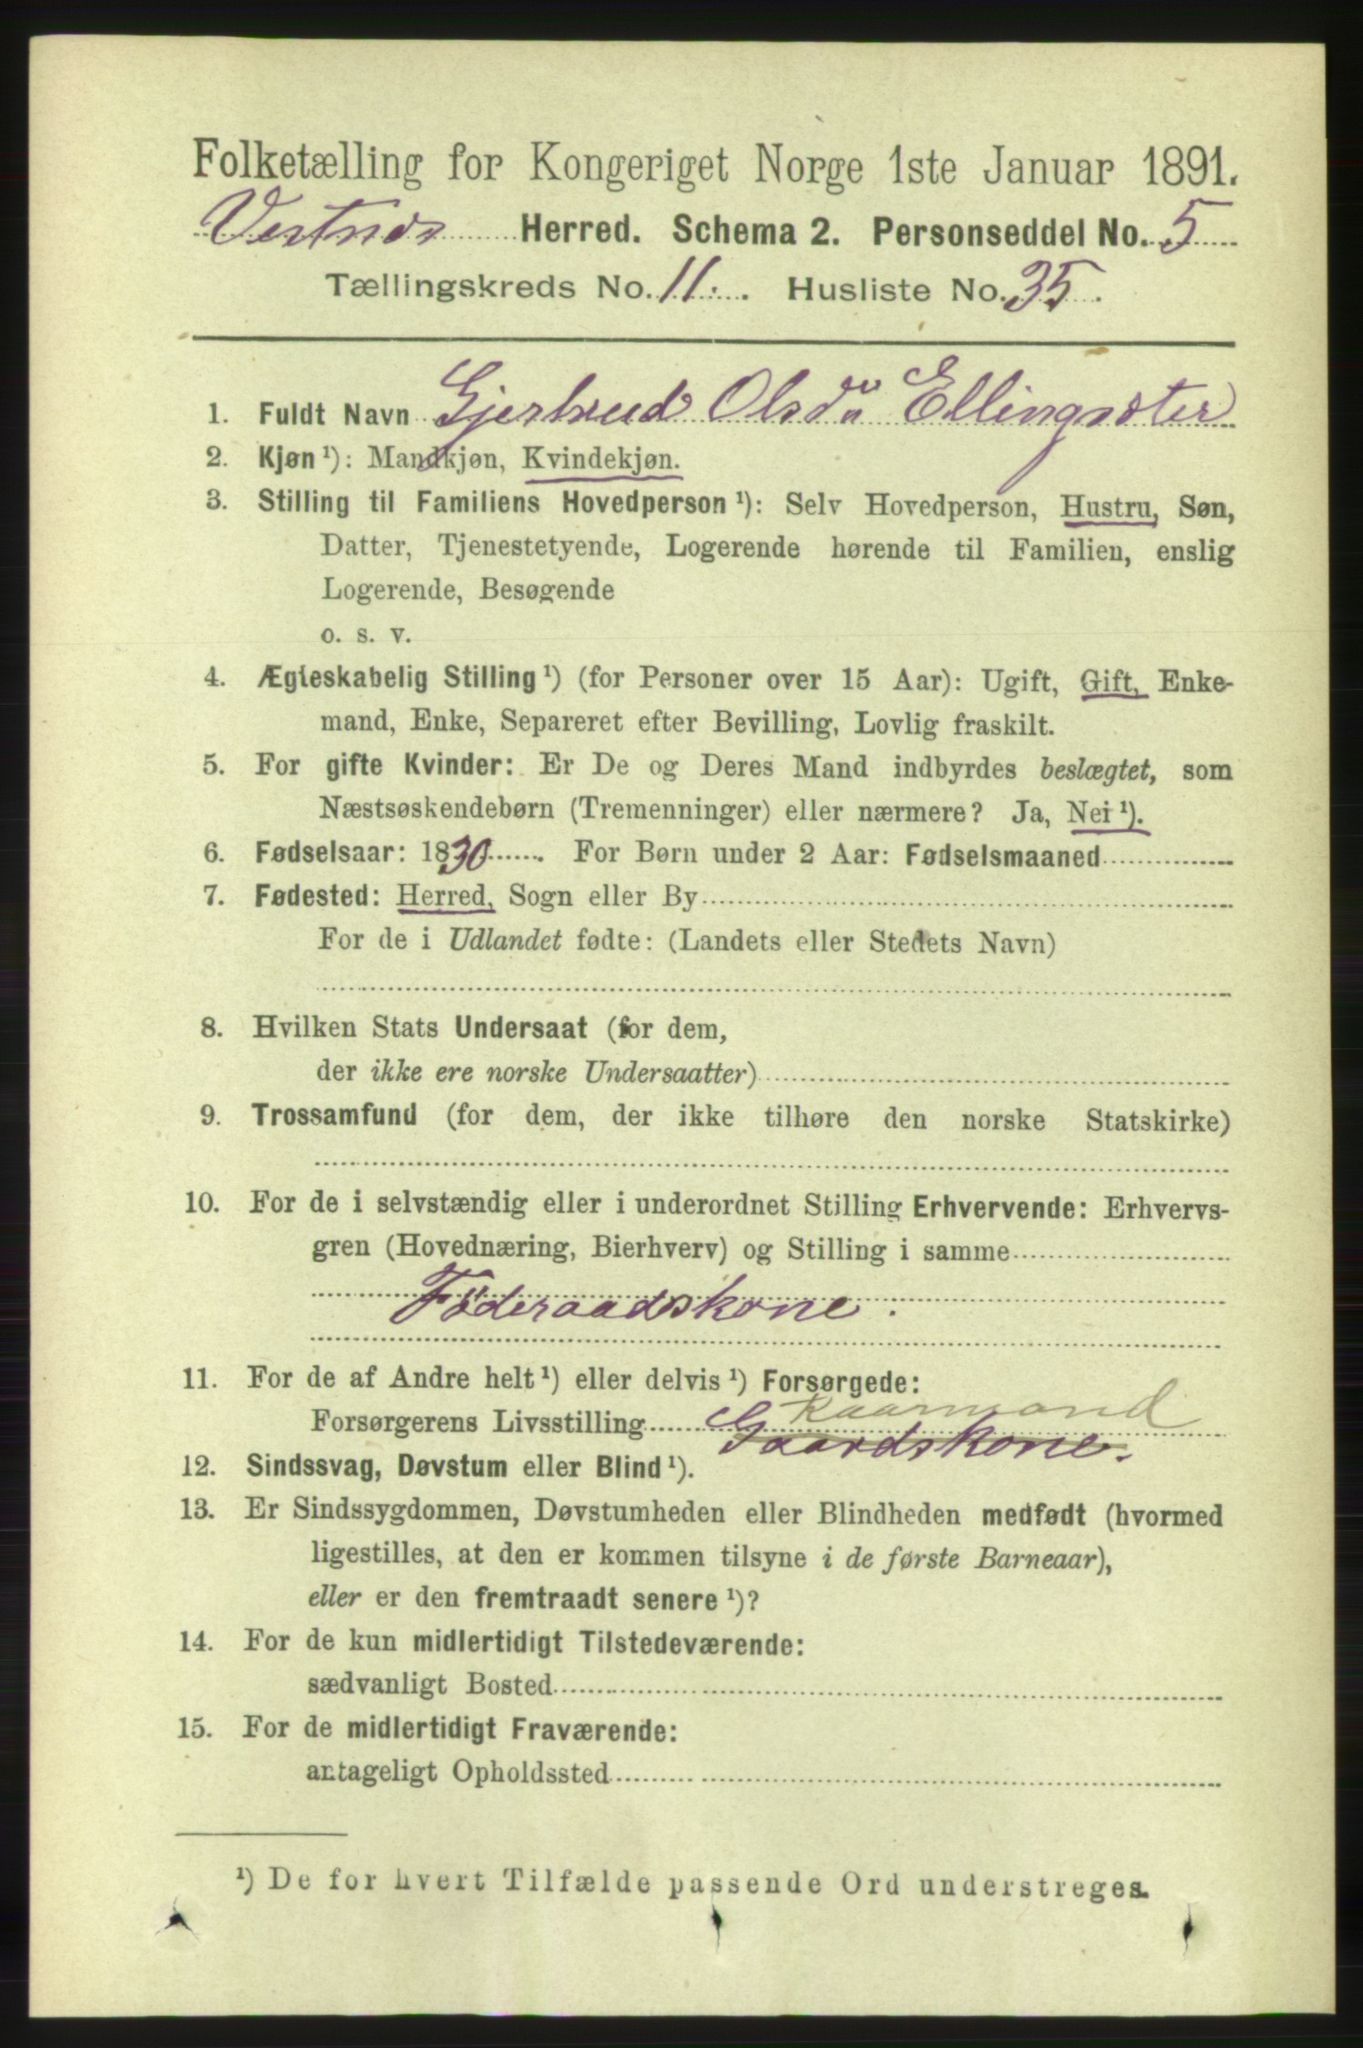 Folketælling for Kongeriget Norge 1ste Januar 1891.
Vestnes Herred. Schema 2. Personseddel No. 5
Tællingskreds No. 11. Husliste No. 35.
1. Fuldt Navn Gjertrud Olsdr Ellingsæter
2. Kjøn ¹): Mandkjøn, Kvindekjøn.
3. Stilling til Familiens Hovedperson ¹): Selv Hovedperson, Hustru, Søn,
Datter, Tjenestetyende, Logerende hørende til Familien, enslig
Logerende, Besøgende
o. s. v.
4. Ægteskabelig Stilling ¹) (for Personer over 15 Aar): Ugift, Gift, Enke-
mand, Enke, Separeret efter Bevilling, Lovlig fraskilt.
5. For gifte Kvinder: Er De og Deres Mand indbyrdes beslægtet, som
Næstsøskendebørn (Tremenninger) eller nærmere? Ja, Nei ¹).
6. Fødselsaar: 1830. For Børn under 2 Aar: Fødselsmaaned
7. Fødested: Herred, Sogn eller By
For de i Udlandet fødte: (Landets eller Stedets Navn)
8. Hvilken Stats Undersaat (for dem,
der ikke ere norske Undersaatter)
9. Trossamfund (for dem, der ikke tilhøre den norske Statskirke)
10. For de i selvstændig eller i underordnet Stilling Erhvervende: Erhvervs-
gren (Hovednæring, Bierhverv) og Stilling i samme
Föderaadskone.
11. For de af Andre helt ¹) eller delvis ¹) Forsørgede:
Kaarmand
Forsørgerens Livsstilling Gaardskone.
12. Sindssvag, Døvstum eller Blind ¹).
13. Er Sindssygdommen, Døvstumheden eller Blindheden medfødt (hvormed
ligestilles, at den er kommen tilsyne i de første Barneaar),
eller er den fremtraadt senere ¹)?
14. For de kun midlertidigt Tilstedeværende:
sædvanligt Bosted
15. For de midlertidigt Fraværende:
antageligt Opholdssted
¹) De for hvert Tilfælde passende Ord understreges.